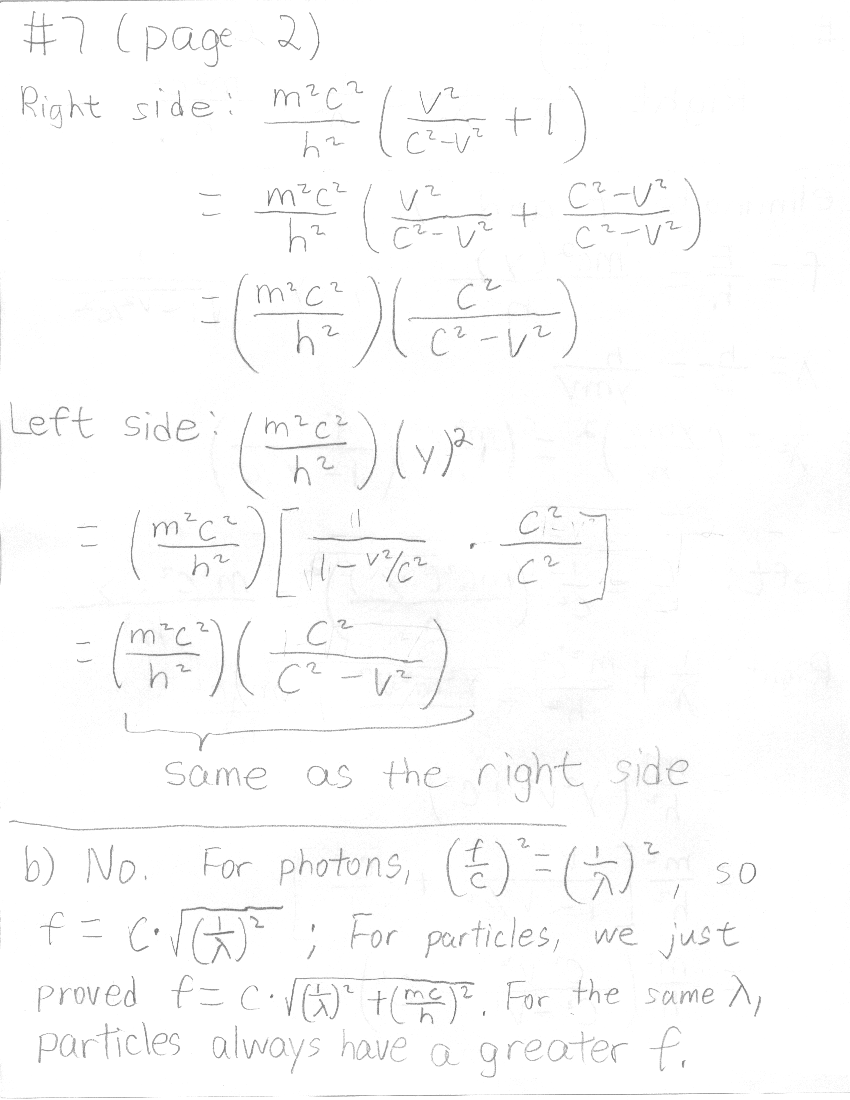 #7 (page 2)
Right side: m²c²/h² (v²/c²-v² + 1)
= m²c²/h² (v²/c²-v² + c²-v²/c²-v²)
= (m²c²/h²)(c²/c²-v²)
Left side: (m²c²/h²)(γ)²
= (m²c²/h²)[1/1-v²/c² · c²/c²]
= (m²c²/h²)(c²/c²-v²)
same as the right side
b) No. For photons, (f/c)² = (1/λ)², so
f = c·√(1/λ)² ; For particles, we just
proved f = c·√(1/λ)² + (mc/h)². For the same λ,
particles always have a greater f.